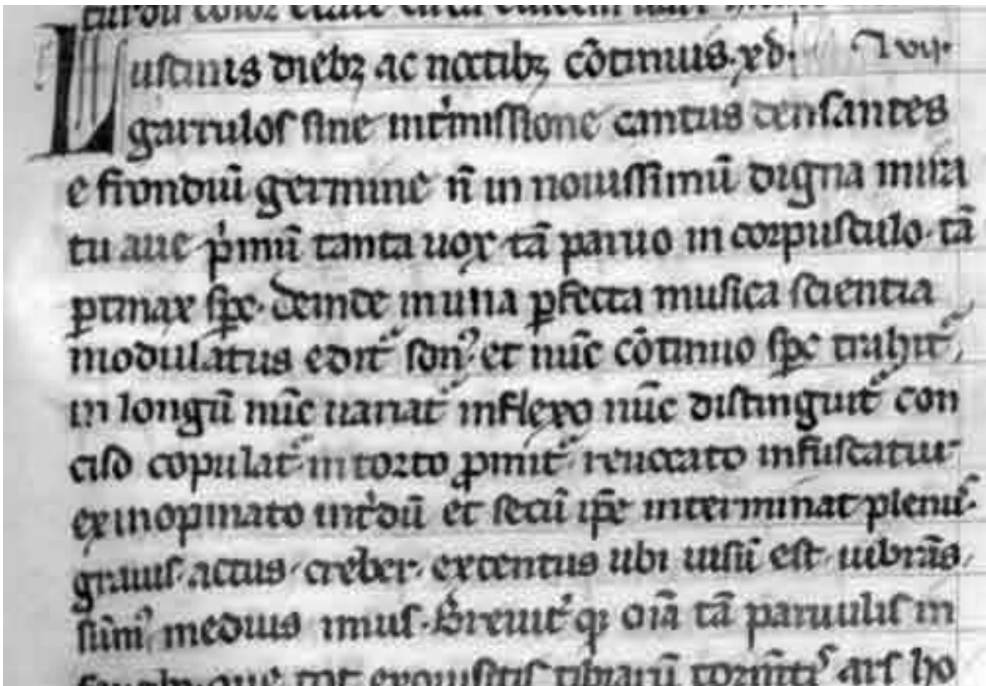 Luscinis diebꝫ ac noctibꝫ cōtinuis. xv. Lvii.
garrulos sine int'missione cantus densantes
e frondiū germine n̄ in nouissimū digna mira
tu aue p'mū tanta uox tā paruo in corpusculo. tā
ꝑtinax sp̄c. deinde in una ꝑfecta musica scientia
modulatus edit᷑ son⁹ et nūc cōtinuo sp̄c trahit᷑
in longū nūc uariat᷑ inflexo nūc distinguit᷑ con
ciso copulat᷑ intorto ꝓmit᷑ reuocato infuscatur
ex inopinato int'dū et secū ip̄e interminat plenꝰ.
grauis. actus. creber. extentus ubi uisū est. uibrās.
sūmꝰ medius imus. Breuit'qꝫ oīa tā paruulis in
faucibꝫ. que tot exquisitis tibiarū torm̄tis ars ho